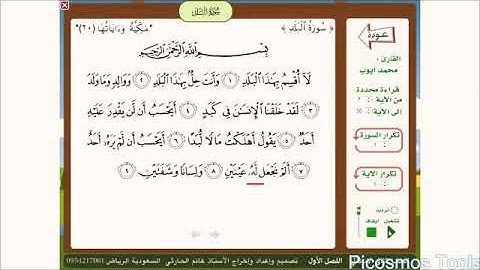 سورة البلد
﴿ سُورَةُ البَلَدِ ﴾ "مَكِّيَّة وَءَايَاتُهَا (٢٠)"
بِسْمِ اللَّهِ الرَّحْمَٰنِ الرَّحِيمِ
لَا أُقْسِمُ بِهَٰذَا الْبَلَدِ ١ وَأَنتَ حِلٌّ بِهَٰذَا الْبَلَدِ ٢ وَوَالِدٍ وَمَا وَلَدَ
٣ لَقَدْ خَلَقْنَا الْإِنسَٰنَ فِي كَبَدٍ ٤ أَيَحْسَبُ أَن لَّن يَقْدِرَ عَلَيْهِ
أَحَدٌ ٥ يَقُولُ أَهْلَكْتُ مَالًا لُّبَدًا ٦ أَيَحْسَبُ أَن لَّمْ يَرَهُ أَحَدٌ
٧ أَلَمْ نَجْعَل لَّهُ عَيْنَيْنِ ٨ وَلِسَانًا وَشَفَتَيْنِ ٩
عودة
القارئ :
محمد أيوب
قراءة محددة
من الآية
إلى الآية
تكرار السورة
تكرار الآية
ترديد
تشغيل إيقاف
الفصل الأول تصميم وإعداد وإخراج الأستاذ غانم الحارثي السعودية الرياض 0954217001
Picosmos Tools